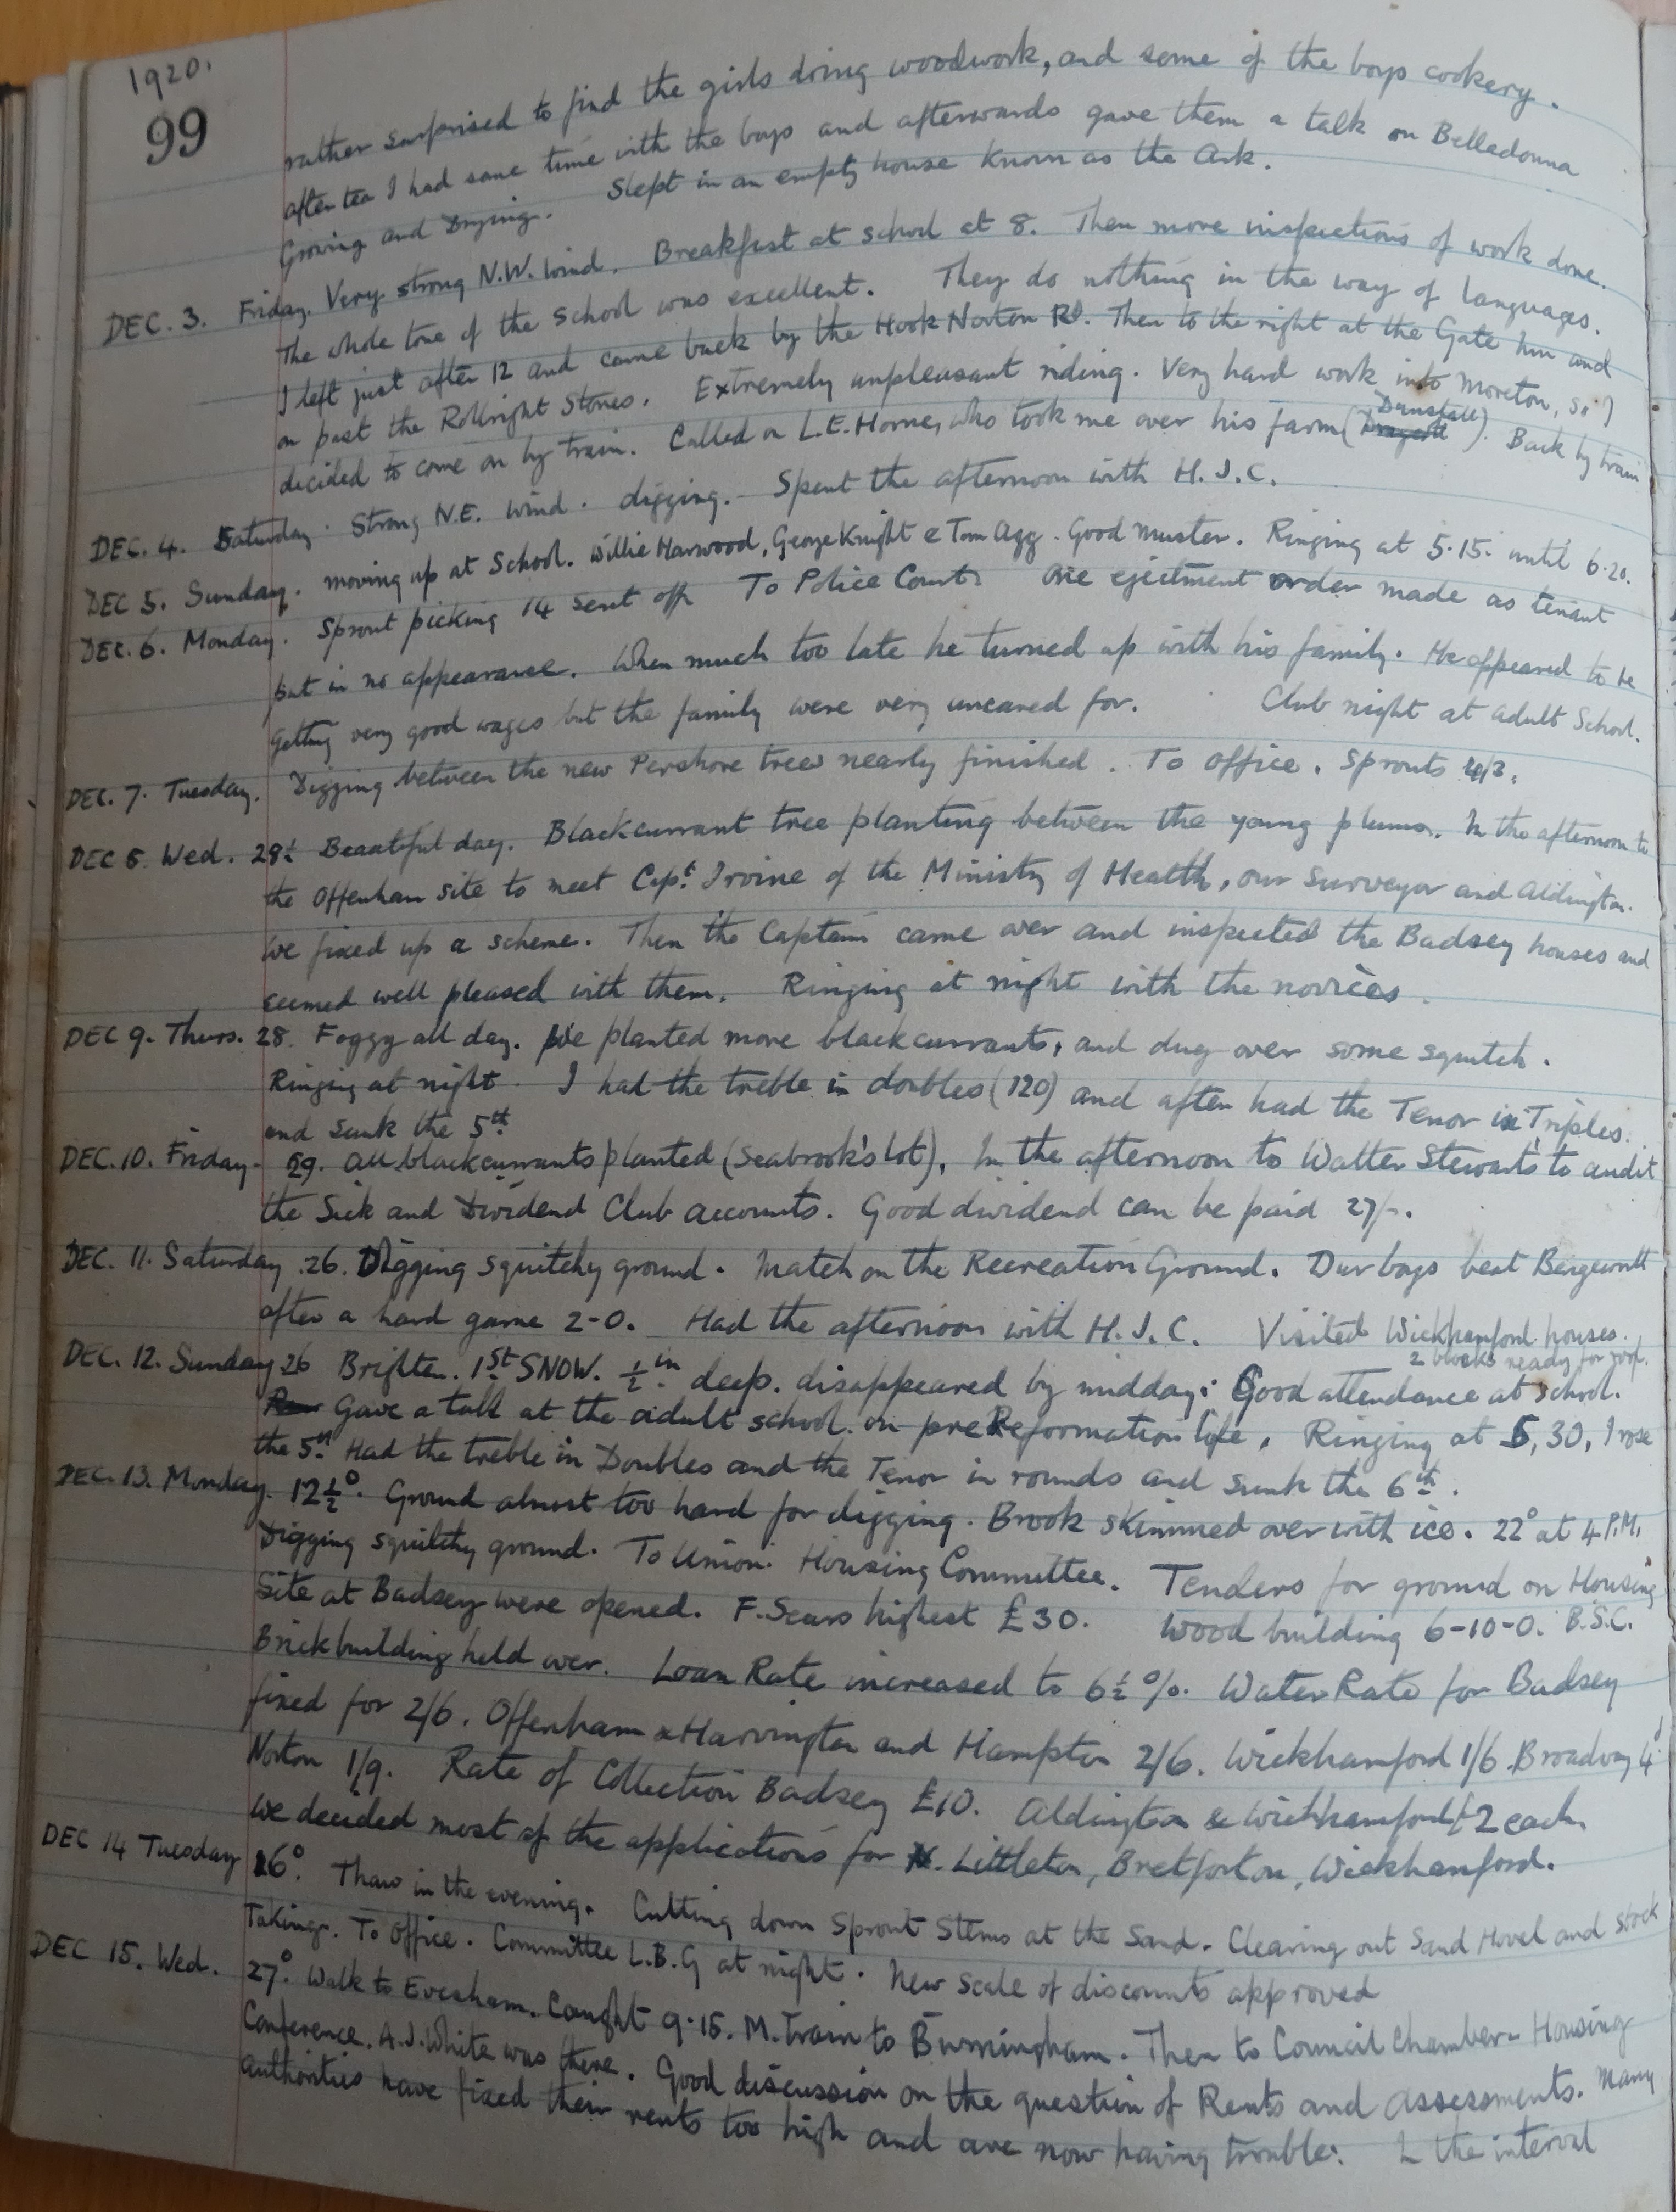 1920.
99
rather surprised to find the girls doing woodwork, and some of the boys cookery.
after tea I had some time with the boys and afterwards gave them a talk on Belladonna
Growing and Drying. Slept in an empty house known as the Ark.
DEC. 3. Friday. Very strong N.W. wind. Breakfast at school at 8. Then more inspections of work done.
The whole tone of the School was excellent. They do nothing in the way of languages.
I left just after 12 and came back by the Hook Norton Rd. Then to the right at the Gate Inn and
on past the Rollright Stones. Extremely unpleasant riding. Very hard work into Moreton, so I
decided to come on by train. Called on L.E. Horne, who took me over his farm (Dunstall). Back by train
DEC. 4. Saturday. Strong N.E. wind. digging. Spent the afternoon with H.J.C.
DEC 5. Sunday. moving up at School. Willie Harwood, George Knight & Tom Agg. Good muster. Ringing at 5.15. until 6.20.
DEC. 6. Monday. Sprout picking 14 sent off. To Police Court. One ejectment order made as tenant
put in no appearance. When much too late he turned up with his family. He appeared to be
getting very good wages but the family were very uncared for. Club night at Adult School.
DEC. 7. Tuesday. Digging between the new Pershore trees nearly finished. To Office. Sprouts 4/3.
DEC 8. Wed. 28. Beautiful day. Blackcurrant tree planting between the young plums. In the afternoon to
the Offenham site to meet Capt. Irvine of the Ministry of Health, our surveyor and Aldington.
We fixed up a scheme. Then the Captain came over and inspected the Badsey houses and
seemed well pleased with them. Ringing at night with the novices.
DEC 9. Thurs. 28. Foggy all day. We planted more blackcurrants, and dug over some squitch.
Ringing at night. I had the treble in doubles (120) and after had the Tenor in Triples.
and sunk the 5th
DEC. 10. Friday. 29. All blackcurrants planted (Seabrook's lot). In the afternoon to Walter Stewart's to audit
the Sick and Dividend Club accounts. Good dividend can be paid 27/-.
DEC. 11. Saturday. 26. Digging squitchy ground. Match on the Recreation Ground. Our boys beat Bengeworth
after a hard game 2-0. Had the afternoon with H.J.C. Visited Wickhamford houses.
2 blocks ready for roof.
DEC. 12. Sunday 26 Brighter. 1st SNOW. ½ in deep. disappeared by midday. Good attendance at school.
Gave a talk at the adult school on preReformation life. Ringing at 5,30, I rose
the 5th Had the treble in Doubles and the Tenor in rounds and sunk the 6th.
DEC. 13. Monday. 12½°. Ground almost too hard for digging. Brook skimmed over with ice. 22° at 4 P.M.
Digging squitchy ground. To Union. Housing Committee. Tenders for ground on Housing
Site at Badsey were opened. F. Sears highest £30. Wood building 6-10-0. B.S.C.
Brick building held over. Loan Rate increased to 6½%. Water Rate for Badsey
fixed for 2/6. Offenham & Harvington and Hampton 2/6. Wickhamford 1/6. Broadway 4d
Norton 1/9. Rate of Collection Badsey £10. Aldington & Wickhamford £2 each.
We decided most of the applications for N. Littleton, Bretforton, Wickhamford.
DEC 14 Tuesday 26°. Thaw in the evening. Cutting down Sprout Stems at the Sand. Clearing out Sand Hovel and stock
Taking. To Office. Committee L.B.G at night. New Scale of discounts approved
DEC 15. Wed. 27°. Walk to Evesham. Caught 9.15. M. Train to Birmingham. Then to Council Chamber - Housing
Conference. A.J. White was there. Good discussion on the question of Rents and Assessments. Many
authorities have fixed their rents too high and are now having trouble. In the interval